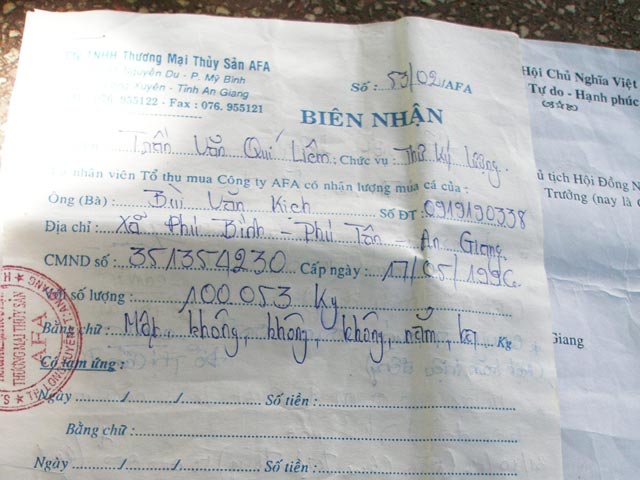 TNHH Thương Mại Thủy Sản AFA
Nguyễn Du - P. Mỹ Bình
Xuyên - Tỉnh An Giang
076. 955122 - Fax : 076. 955121
Số : 53/02/AFA
BIÊN NHẬN
Trần Văn Quí Liêm Chức vụ : Thư Ký Lượng
nhân viên Tổ thu mua Công ty AFA có nhận lượng mua cá của :
Ông (Bà) : Bùi Văn Kích Số ĐT : 0919190338
Địa chỉ : Xã Phú Bình - Phú Tân - An Giang
CMND số : 351354230 Cấp ngày : 17/05/1996
số lượng : 100.053 Kg
Bằng chữ : Một, không, không, không, năm, ba Kg
Có tạm ứng :
Ngày / / Số tiền :
Bằng chữ :
Ngày / / Số tiền :
THƯƠNG MẠI THỦY SẢN
AFA
Hội Chủ Nghĩa Việt
Tự do - Hạnh phúc
tịch Hội Đồng N
Trưởng (nay là
Giang